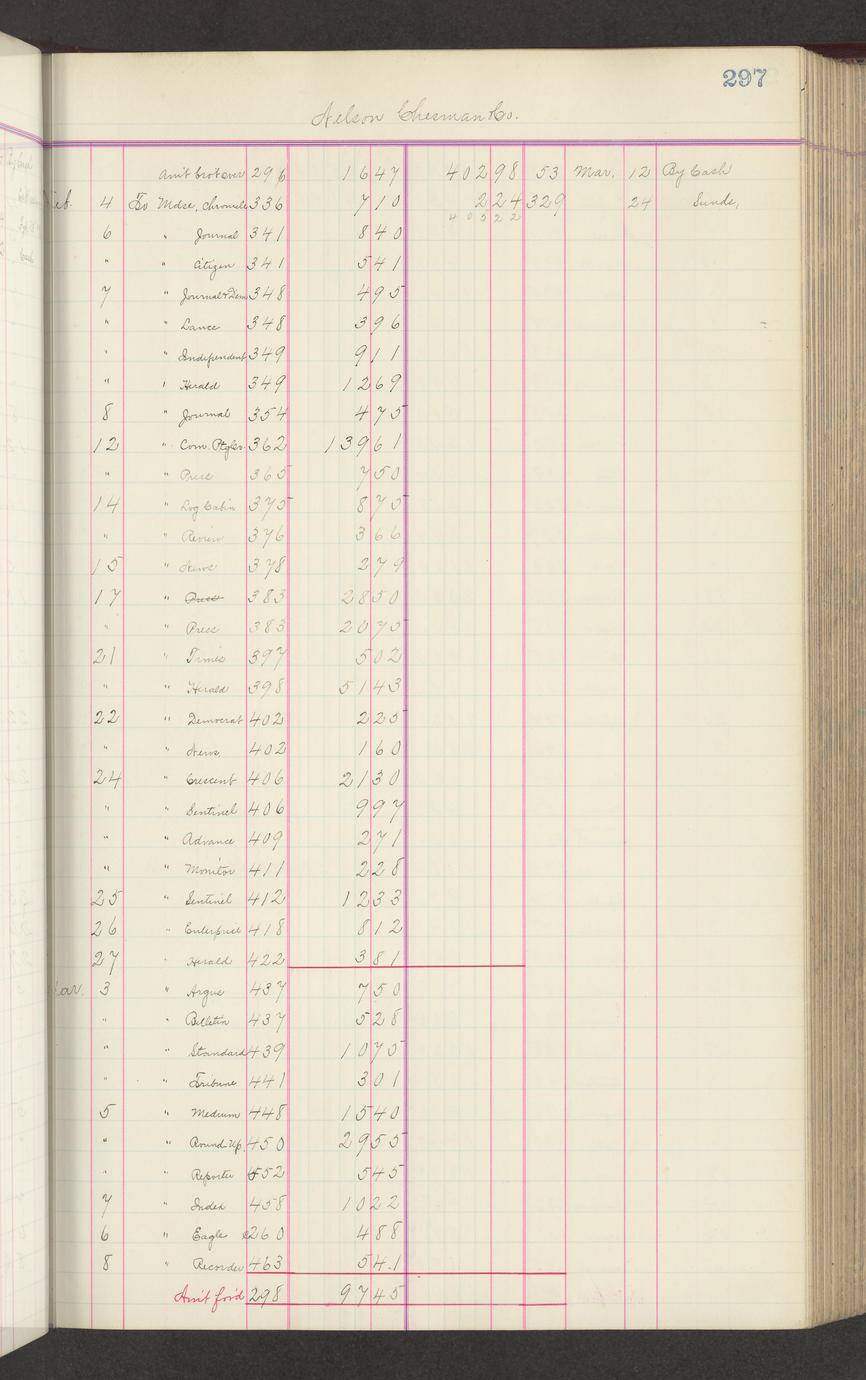 297
Nelson Chesman Co.
Amt brot over 296 1647 40298 53 Mar. 12 By Cash
Feb. 4 To Mdse, Chronicle 336 710 224 329 24 Sunds,
40522
6 " Journal 341 840
" " Citizen 341 541
7 " Journal & Dem 348 495
" " Lance 348 396
" " Independent 349 911
" " Herald 349 1269
8 " Journal 354 475
12 " Com. Ptg Co. 362 13961
" " Press 365 750
14 " Log Cabin 375 875
" " Review 376 366
15 " News 378 279
17 " Press 383 2850
" " Press 383 2075
21 " Times 397 502
" " Herald 398 5143
22 " Democrat 402 225
" " News, 402 160
24 " Crescent 406 2130
" " Sentinel 406 997
" " Advance 409 271
" " Monitor 411 228
25 " Sentinel 412 1233
26 " Enterprise 418 812
27 " Herald 422 381
Mar. 3 " Argus 437 750
" " Bulletin 437 528
" " Standard 439 1075
" " Tribune 441 301
5 " Medium 448 1540
" " Round-Up. 450 2955
" " Reporter 452 545
7 " Index 458 1022
6 " Eagle 260 488
8 " Recorder 463 541
Amt for'd 298 9745